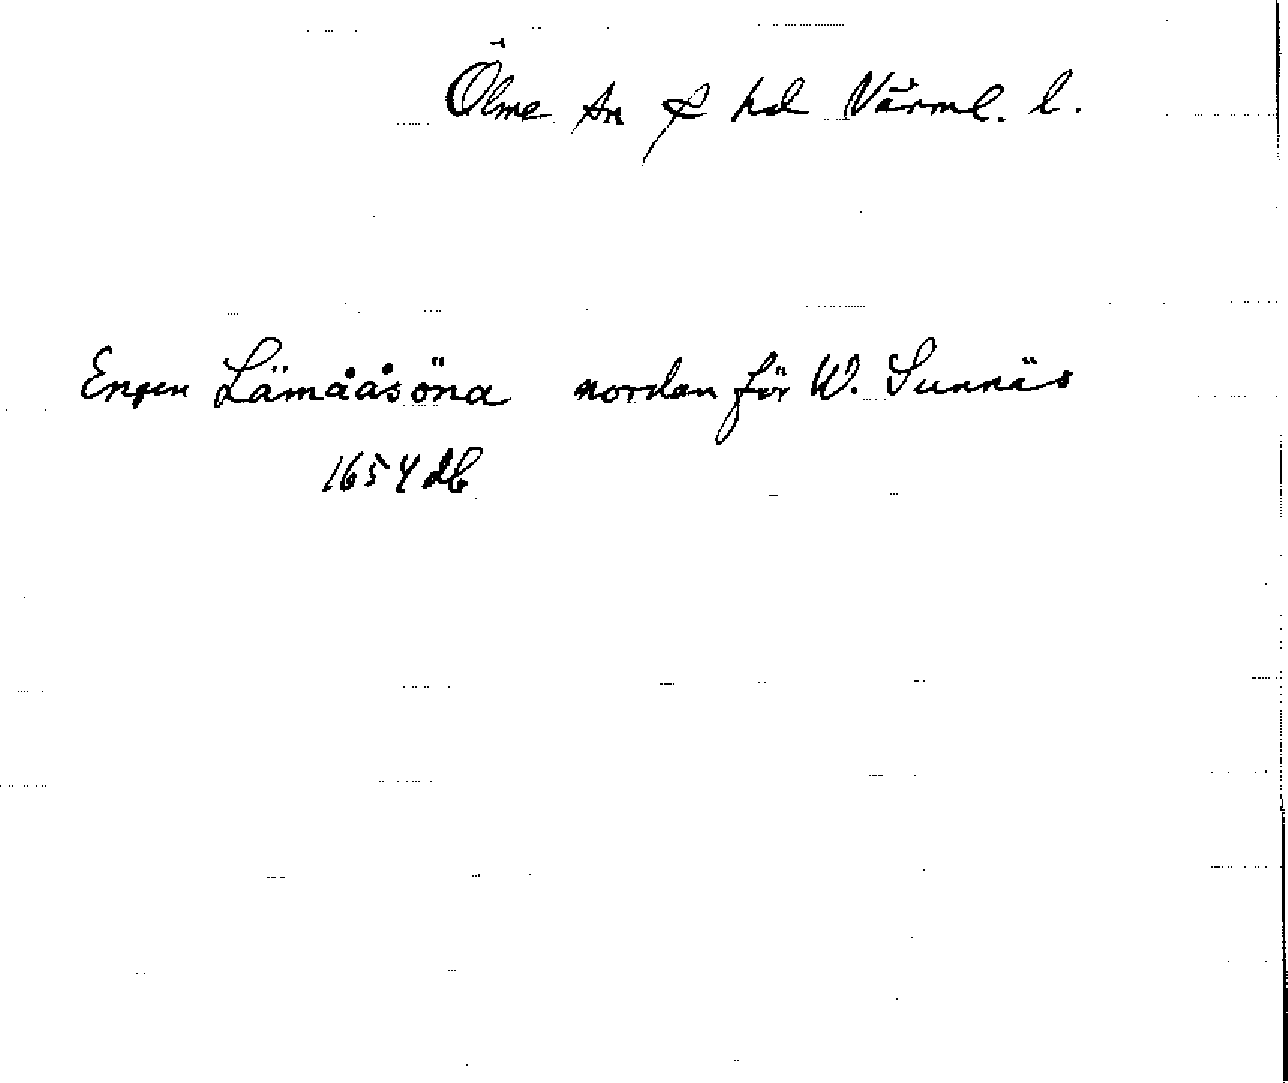 Ölme sn & hd Värml. l.
Engen Lämååsöna nordan för W. Sunnäs
1654 db